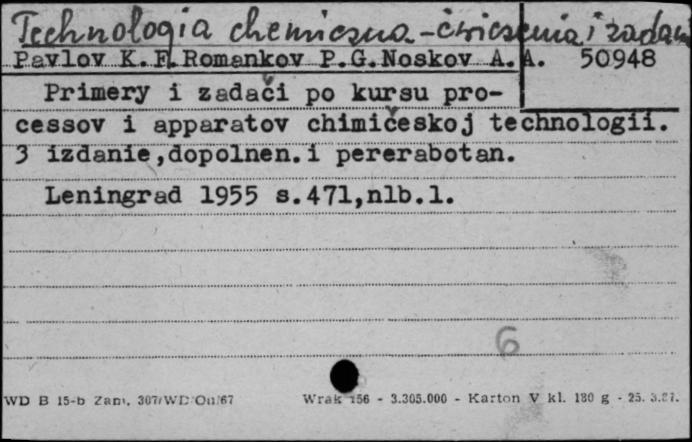 Technologia chemiczna - ćwiczenia i zadania
Pavlov K.F. Romankov P.G. Noskov A.A. 50948
Primery i zadači po kursu pro-
cessov i apparatov chimičeskoj technologii.
3 izdanie,dopolnen.i pererabotan.
Leningrad 1955 s.471,nlb.1.
6
WD B 15-b Zam. 307/WD/On/67 Wrak 156 - 3.305.000 - Karton V kl. 180 g - 25. 3.67.